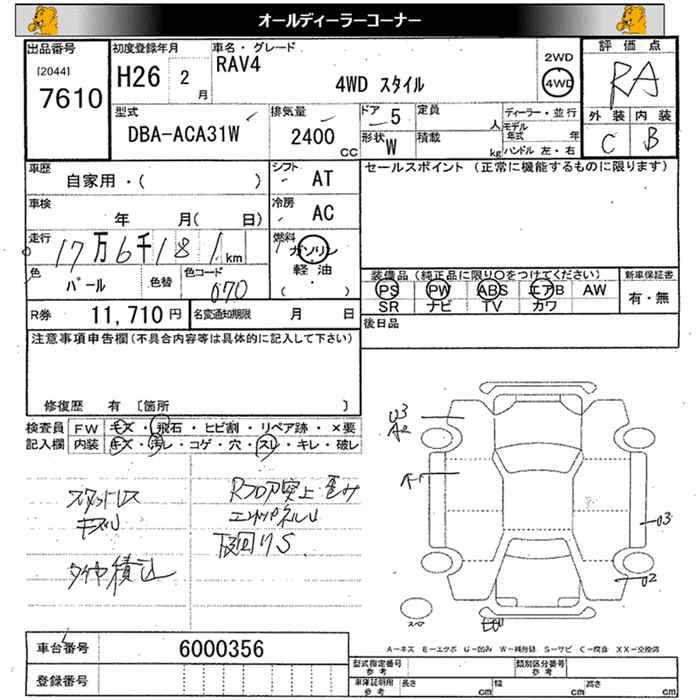 オールディーラーコーナー
出品番号
[2044]
7610
初度登録年月
H26 2 月
車名・グレード
RAV4
4WD スタイル
2WD
4WD
評価点
RA
外装 内装
C B
型式
DBA-ACA31W
排気量
2400 CC
ドア 5
形状 W
定員 人
積載 kg
ディーラー・並行
モデル年式 年
ハンドル 左・右
車歴
自家用・( )
シフト AT
セールスポイント (正常に機能するものに限ります)
車検
年 月( 日)
冷房 AC
走行
17万6千181km
燃料
ガソリン
軽油
( ・ )
色
パール
色替
色コード
070
装備品 (純正品に限り○をつけてください)
PS PW ABS エアB AW
SR ナビ TV カワ
新車保証書
有・無
R券 11,710 円
名変通知期限 月 日
後日品
注意事項申告欄(不具合内容等は具体的に記入して下さい)
修復歴 有 [箇所 ]
検査員記入欄
FW キズ・飛石・ヒビ割・リペア跡・×要
内装 キズ・汚レ・コゲ・穴・スレ・キレ・破レ
スタットレス
キズU
タイヤ積込
Rフロア突上・歪み
エンドパネルU
下回りS
U3
A2
A1
U3
U2
EU
スペア
A−キズ E−エクボ U−凹み W−補修跡 S−サビ C−腐食 XX−交換済
車台番号 6000356
登録番号
型式指定番号
参考
類別区分番号
参考
車庫証明用
参考
長さ cm
幅 cm
高さ cm